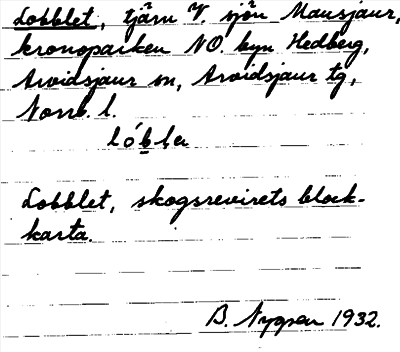 Lobblet, tjärn V. sjön Mausjaur,
kronoparken NO. byn Hedberg,
Arvidsjaur sn, Arvidsjaur tg,
Norrb. l.
lóbblɐ
Lobblet, skogsrevirets block-
karta.
B. Nygren 1932.